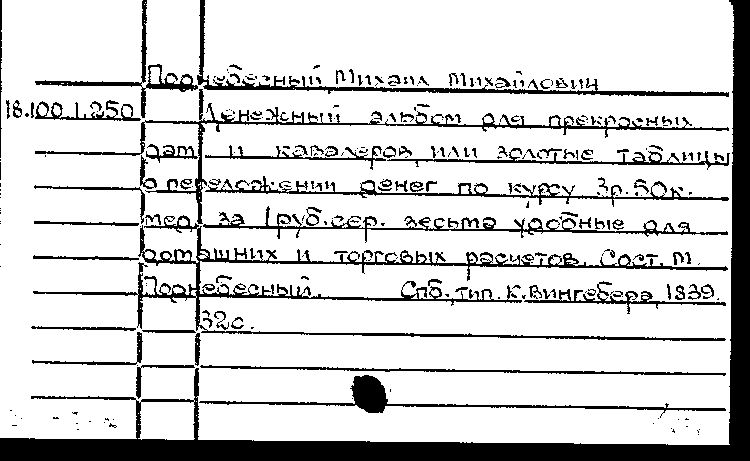 Поднебесный, Михаил Михайлович
18.100.1.250 Денежный альбом для прекрасных
дам и кавалеров, или золотые таблицы
о переложении денег по курсу 3р.50к.
мед. за 1руб.сер. весьма удобные для
домашних и торговых расчетов. Сост. М.
Поднебесный. Спб., тип. К. Вингебера, 1839.
32с.